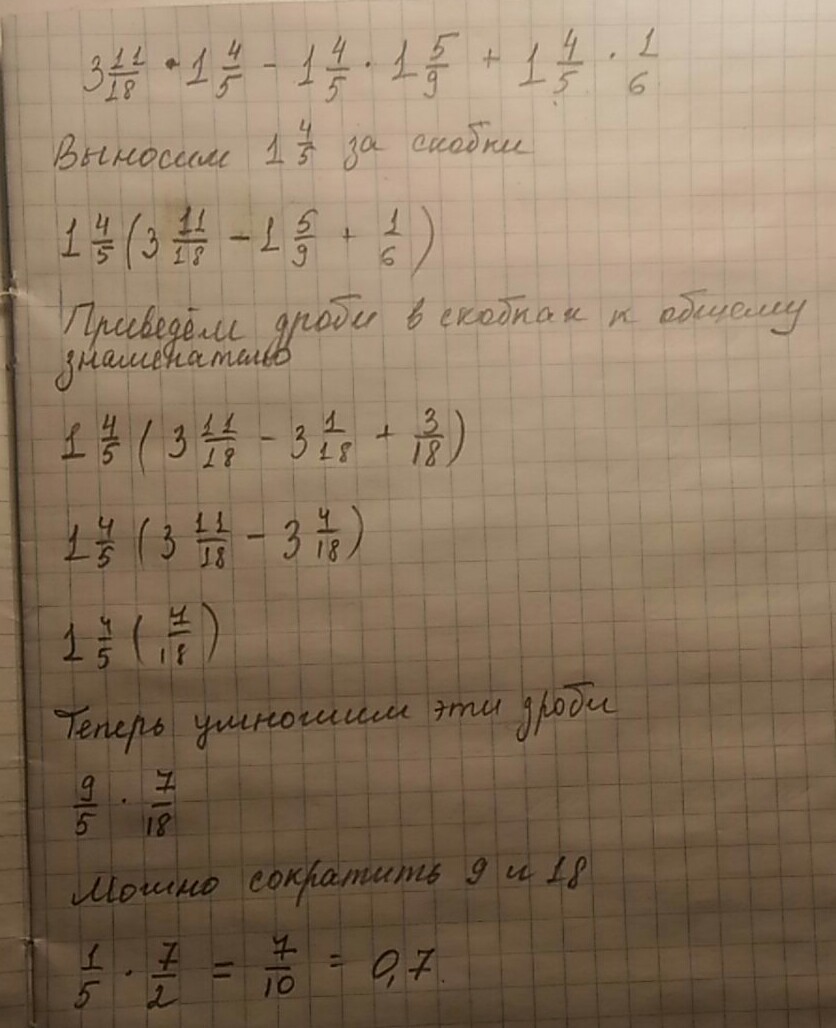 3 11/18 · 1 4/5 - 1 4/5 · 1 5/9 + 1 4/5 · 1/6
Выносим 1 4/5 за скобки
1 4/5 (3 11/18 - 1 5/9 + 1/6)
Приведём дроби в скобках к общему
знаменателю
1 4/5 (3 11/18 - 3 1/18 + 3/18)
1 4/5 (3 11/18 - 3 4/18)
1 4/5 (7/18)
Теперь умножим эти дроби
9/5 · 7/18
Можно сократить 9 и 18
1/5 · 7/2 = 7/10 = 0,7